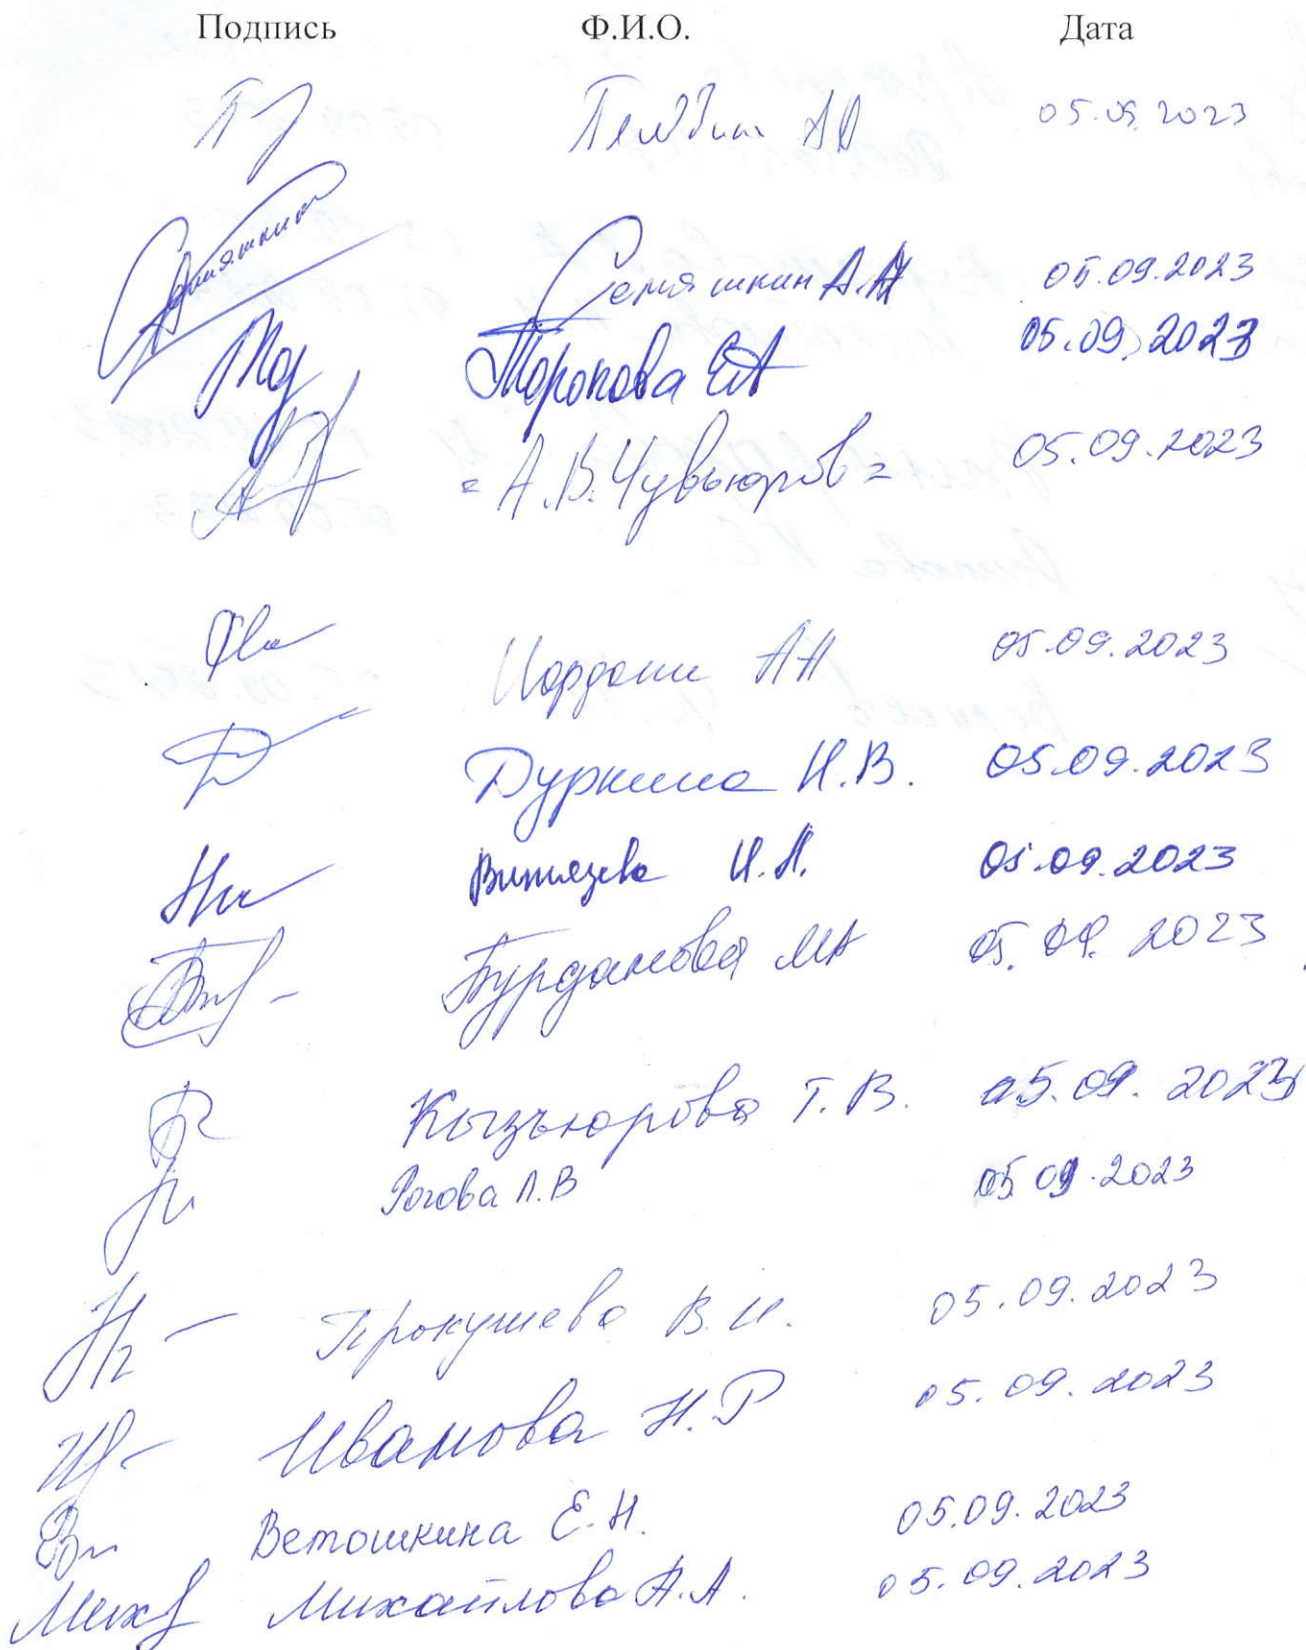 Подпись Ф.И.О. Дата
05.09.2023
Семяшкин А.А 05.09.2023
Торопова ЕА 05.09.2023
= А.В.Чувьюров = 05.09.2023
Иордани АН 05.09.2023
Дуркина И.В. 05.09.2023
Витязева И.А. 05.09.2023
Бурданова МА 05.09.2023
Кызъюрова Т.В. 05.09.2023
Рогова Л.В 05.09.2023
Прокушева В.И. 05.09.2023
Иванова Н.Р 05.09.2023
Ветошкина Е.Н. 05.09.2023
Михайлова А.А. 05.09.2023